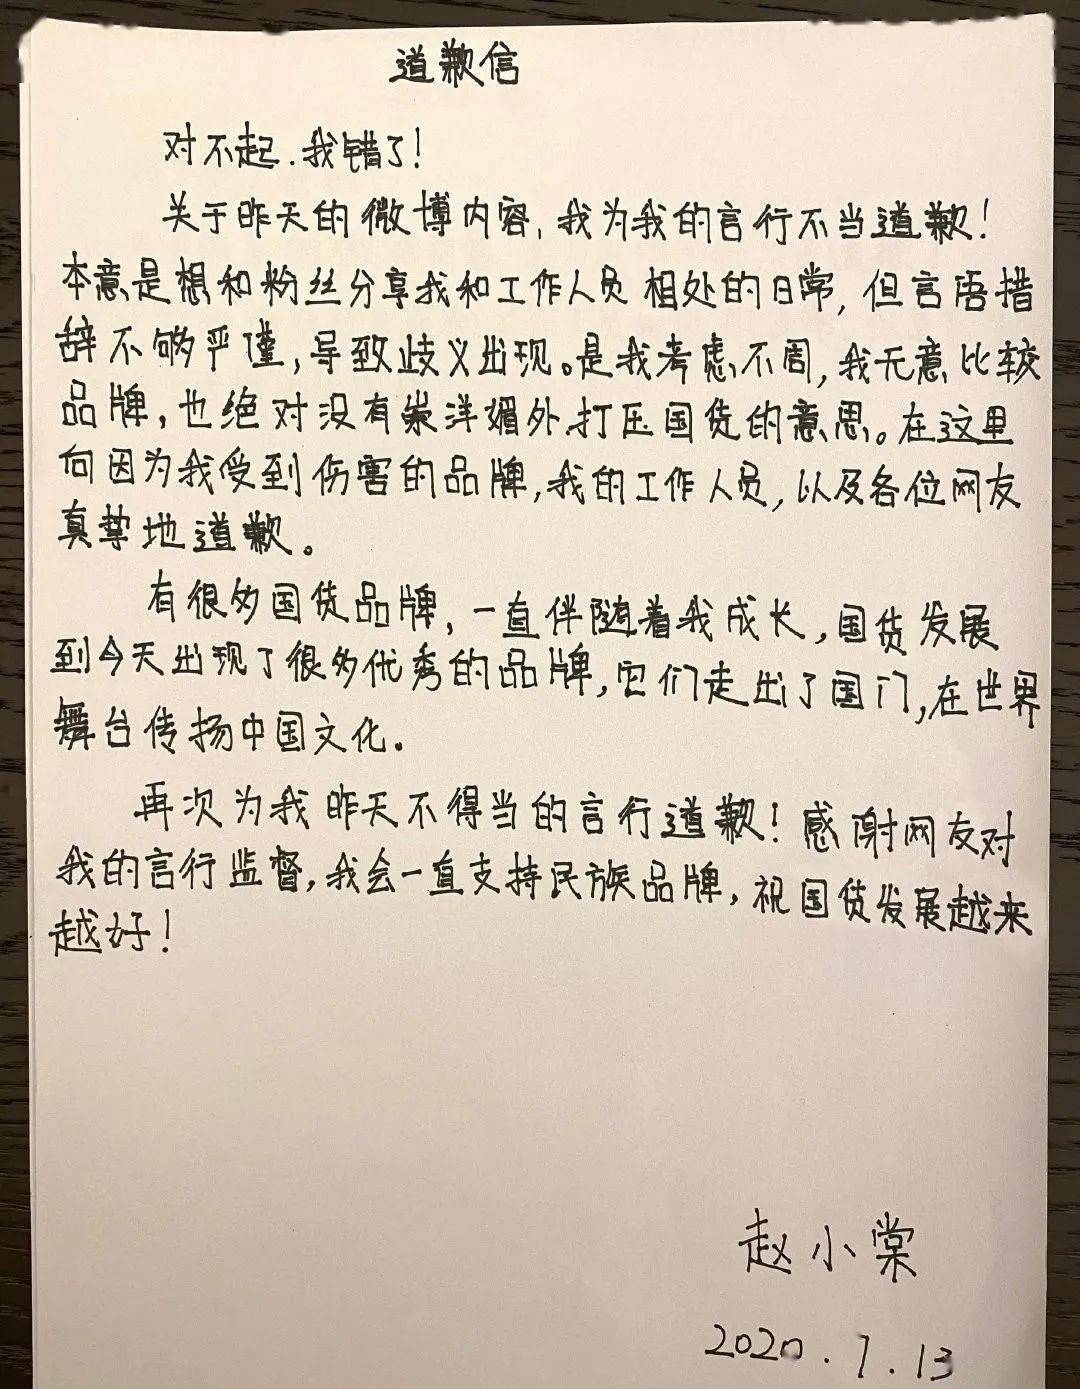 道歉信
对不起.我错了!
关于昨天的微博内容,我为我的言行不当道歉!
本意是想和粉丝分享我和工作人员相处的日常,但言语措
辞不够严谨,导致歧义出现。是我考虑不周,我无意比较
品牌,也绝对没有崇洋媚外.打压国货的意思。在这里
向因为我受到伤害的品牌,我的工作人员,以及各位网友
真挚地道歉。
有很多国货品牌,一直伴随着我成长,国货发展
到今天出现了很多优秀的品牌,它们走出了国门,在世界
舞台传扬中国文化。
再次为我昨天不得当的言行道歉!感谢网友对
我的言行监督,我会一直支持民族品牌,祝国货发展越来
越好!
赵小棠
2020.7.13